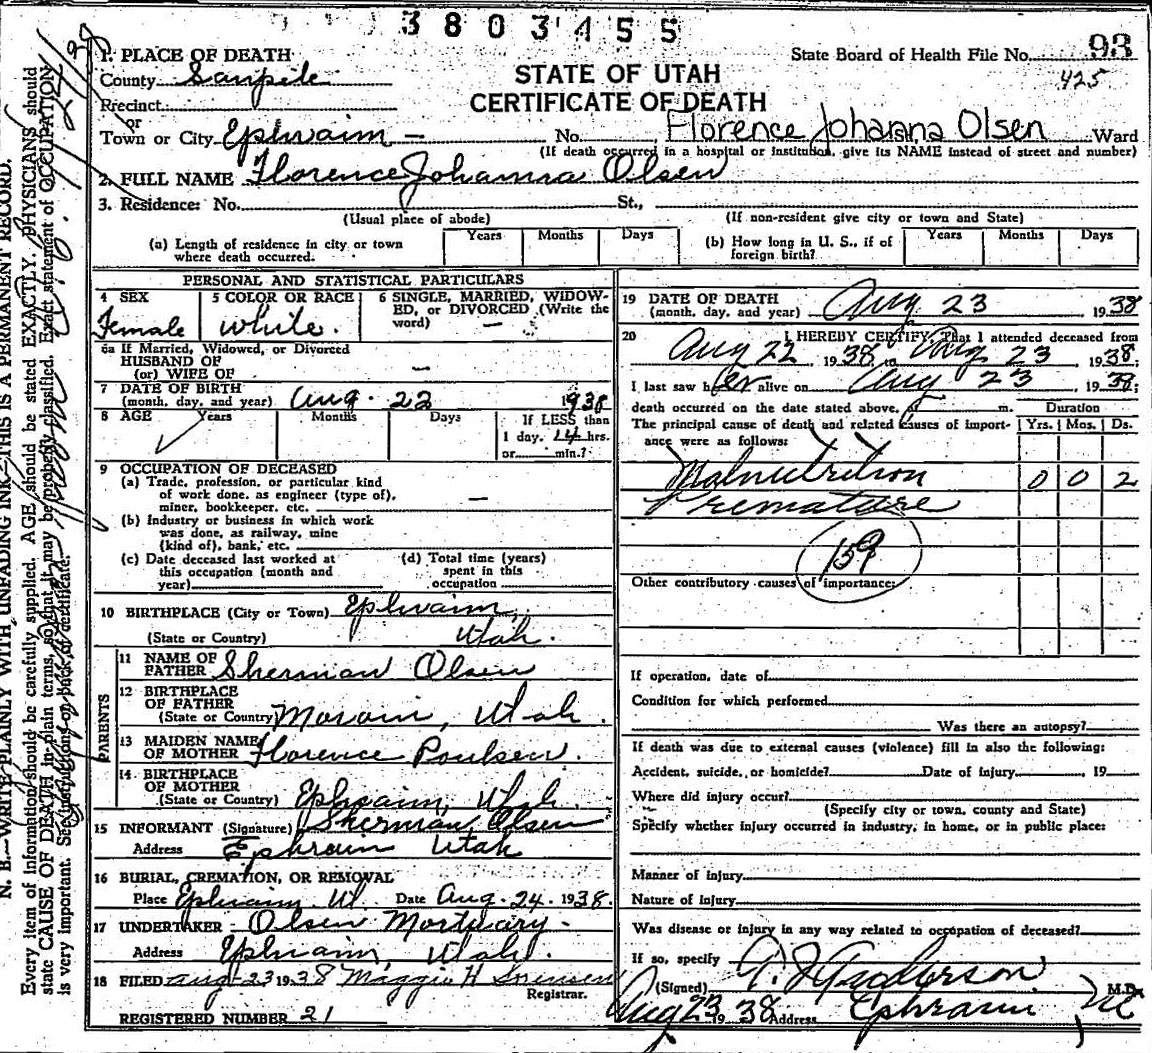 3803455
1. PLACE OF DEATH
State Board of Health File No. 93
County Sanpete
STATE OF UTAH
425
Precinct
CERTIFICATE OF DEATH
or
Town or City Ephraim — No. Florence Johanna Olsen Ward
(If death occurred in a hospital or institution, give its NAME instead of street and number)
2. FULL NAME Florence Johanna Olsen
3. Residence: No. St.,
(Usual place of abode) (If non-resident give city or town and State)
(a) Length of residence in city or town where death occurred. Years Months Days
(b) How long in U. S., if of foreign birth? Years Months Days
PERSONAL AND STATISTICAL PARTICULARS
4 SEX Female
5 COLOR OR RACE white.
6 SINGLE, MARRIED, WIDOWED, or DIVORCED (Write the word) —
5a If Married, Widowed, or Divorced
HUSBAND OF
(or) WIFE OF —
7 DATE OF BIRTH
(month, day, and year) Aug. 22 1938
8 AGE Years Months Days If LESS than
1 day, 14 hrs.
or min.?
9 OCCUPATION OF DECEASED
(a) Trade, profession, or particular kind
of work done, as engineer (type of),
miner, bookkeeper, etc. —
(b) Industry or business in which work
was done, as railway, mine
(kind of), bank, etc.
(c) Date deceased last worked at
this occupation (month and
year)
(d) Total time (years)
spent in this
occupation
10 BIRTHPLACE (City or Town) Ephraim,
(State or Country) Utah.
PARENTS
11 NAME OF FATHER Sherman Olsen
12 BIRTHPLACE OF FATHER
(State or Country) Moroni, Utah.
13 MAIDEN NAME OF MOTHER Florence Poulsen.
14 BIRTHPLACE OF MOTHER
(State or Country) Ephraim, Utah.
15 INFORMANT (Signature) Sherman Olsen
Address Ephraim Utah
16 BURIAL, CREMATION, OR REMOVAL
Place Ephraim Ut. Date Aug. 24. 1938.
17 UNDERTAKER Olsen Mortuary.
Address Ephraim, Utah.
18 FILED Aug-23 1938 Maggie H Sorensen
Registrar.
REGISTERED NUMBER 21
19 DATE OF DEATH
(month, day, and year) Aug 23, 1938
20 I HEREBY CERTIFY, That I attended deceased from
Aug 22, 1938 to Aug 23, 1938;
I last saw her alive on Aug 23, 1938;
death occurred on the date stated above, at m. Duration
The principal cause of death and related causes of importance were as follows: Yrs. Mos. Ds.
Malnutrition 0 0 2
Premature
159
Other contributory causes of importance:
If operation, date of
Condition for which performed
Was there an autopsy?
If death was due to external causes (violence) fill in also the following:
Accident, suicide, or homicide? Date of injury , 19
Where did injury occur?
(Specify city or town, county and State)
Specify whether injury occurred in industry, in home, or in public place:
Manner of injury
Nature of injury
Was disease or injury in any way related to occupation of deceased?
If so, specify
(Signed) Anderson M.D.
Aug 23 19 38 Address Ephraim
N. B.—WRITE PLAINLY WITH UNFADING INK—THIS IS A PERMANENT RECORD.
Every item of information should be carefully supplied. AGE should be stated EXACTLY. PHYSICIANS should
state CAUSE OF DEATH in plain terms, so that it may be properly classified. Exact statement of OCCUPATION
is very important. See instructions on back of certificate.